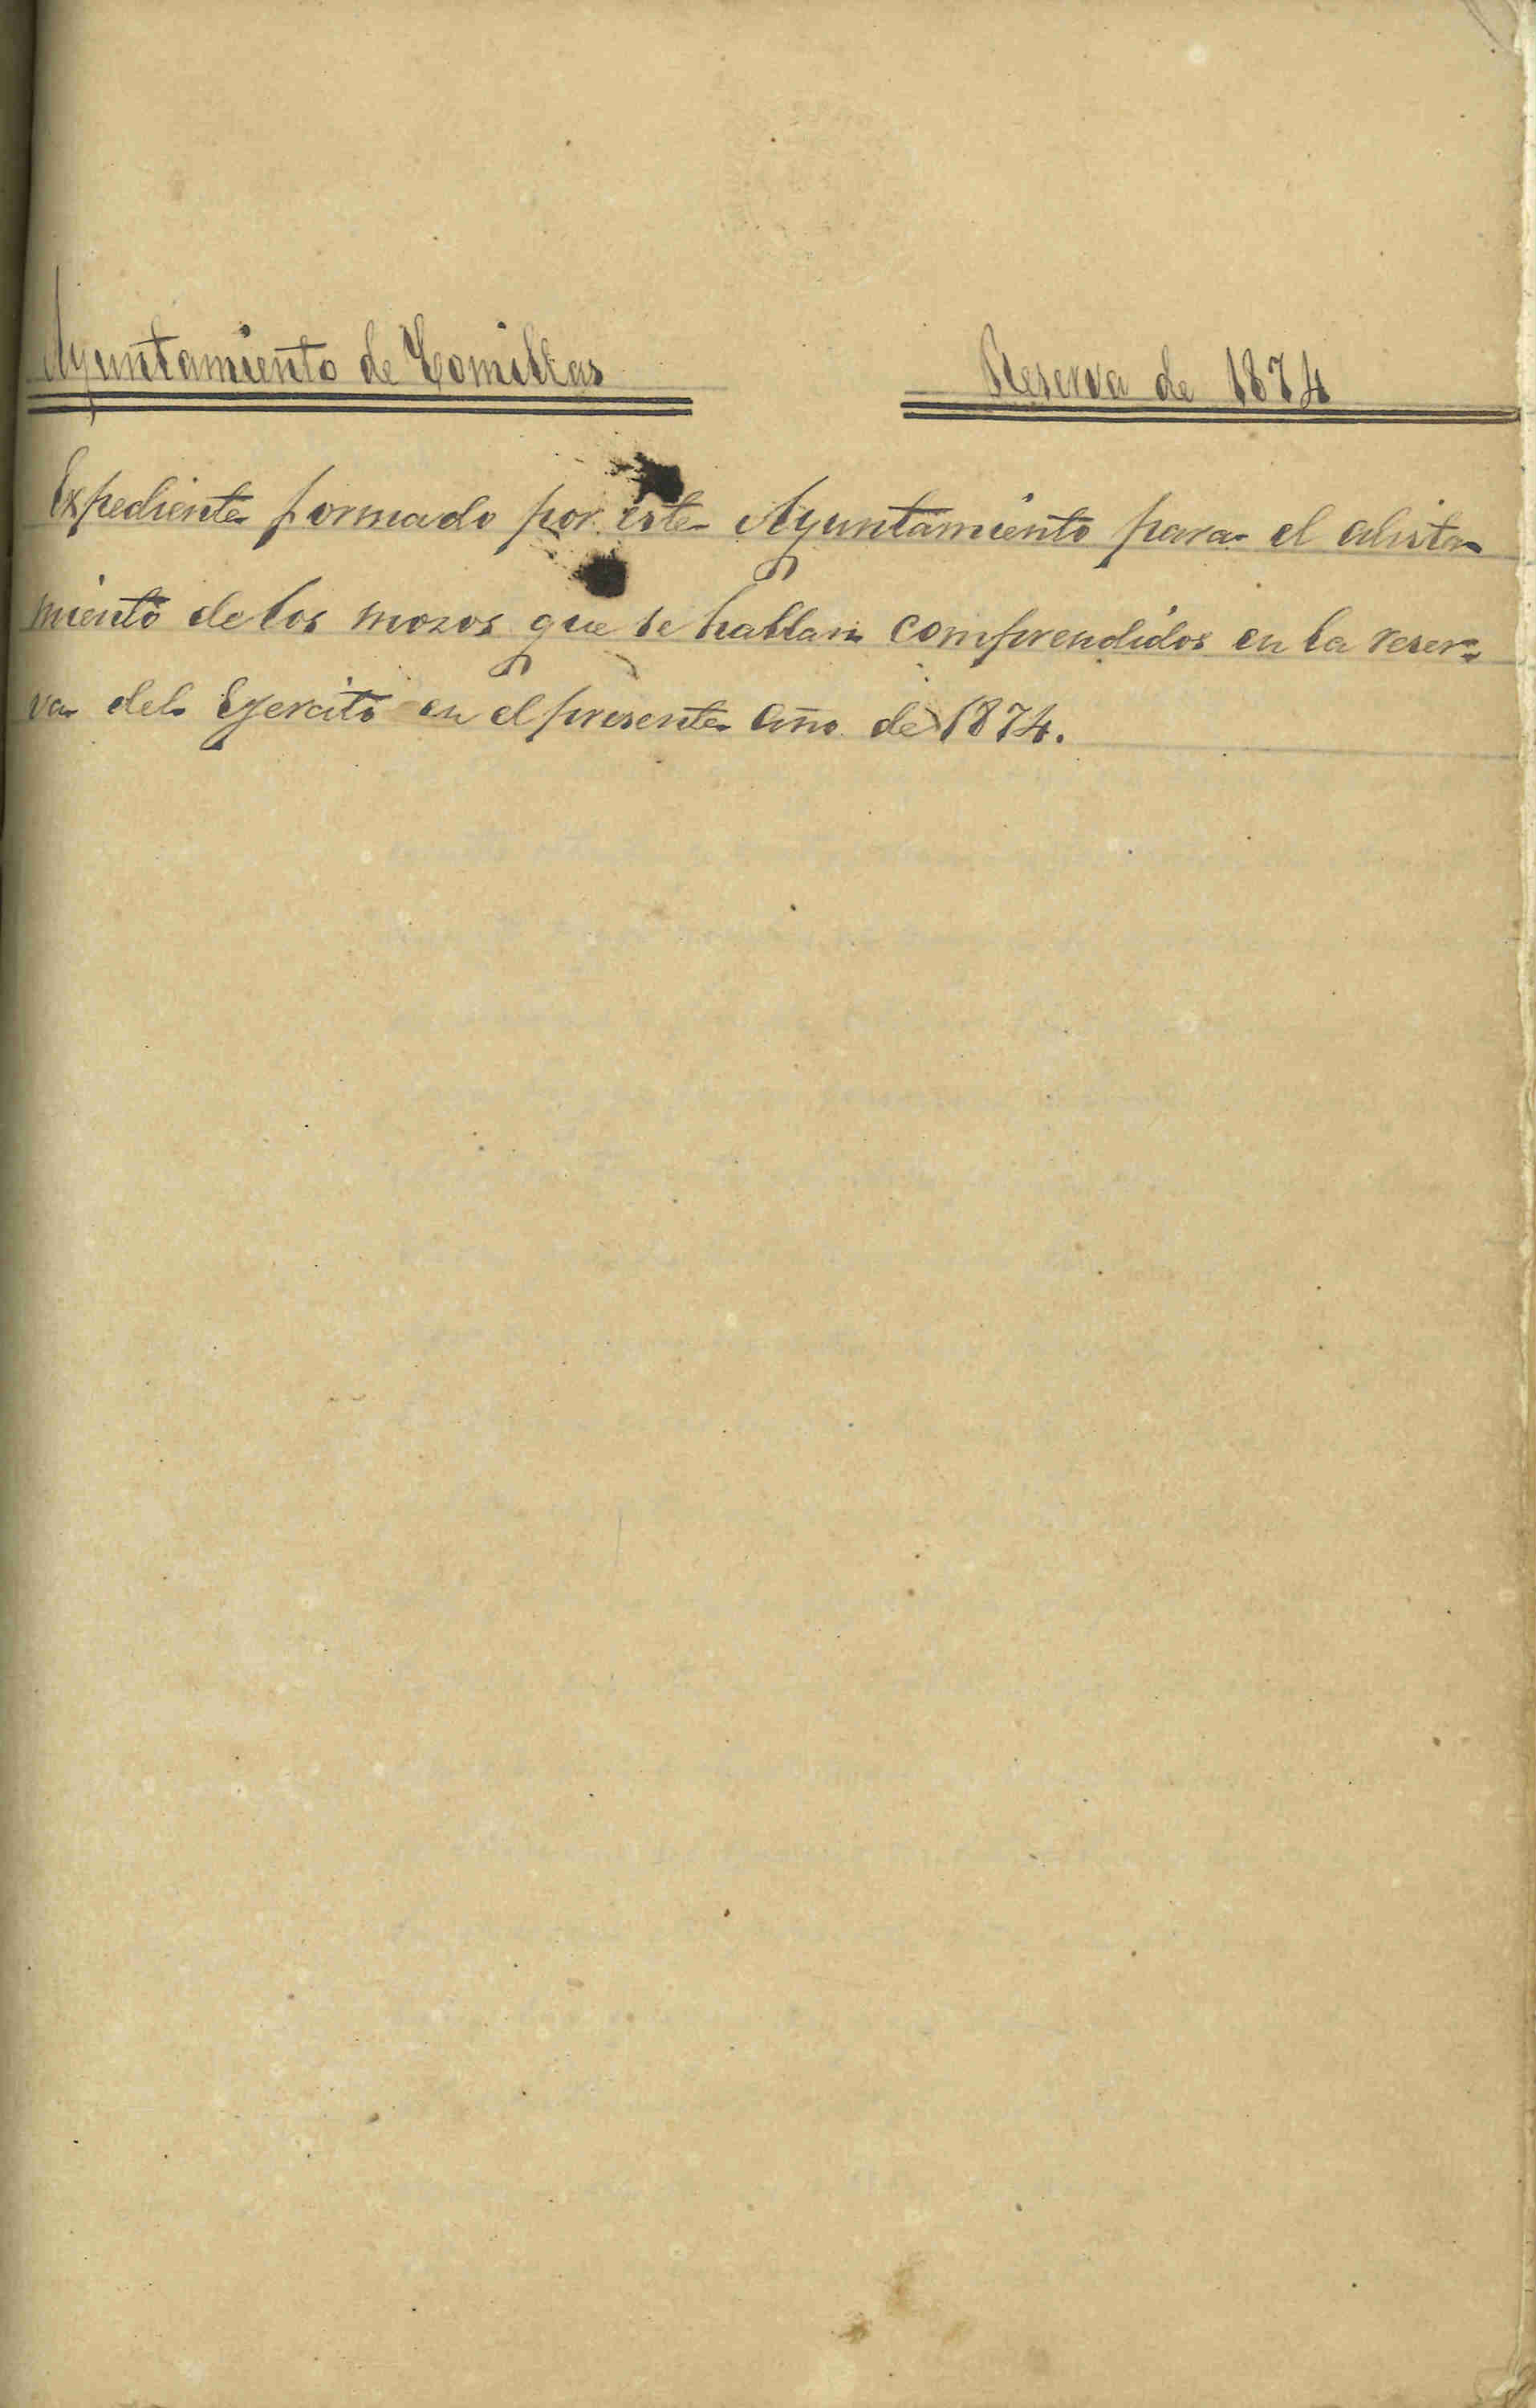 Ayuntamiento de Comillas
Reserva de 1874
Expediente formado por este Ayuntamiento para el alista-
miento de los mozos que se hallan comprendidos en la reser-
va del Ejercito en el presente año de 1874.